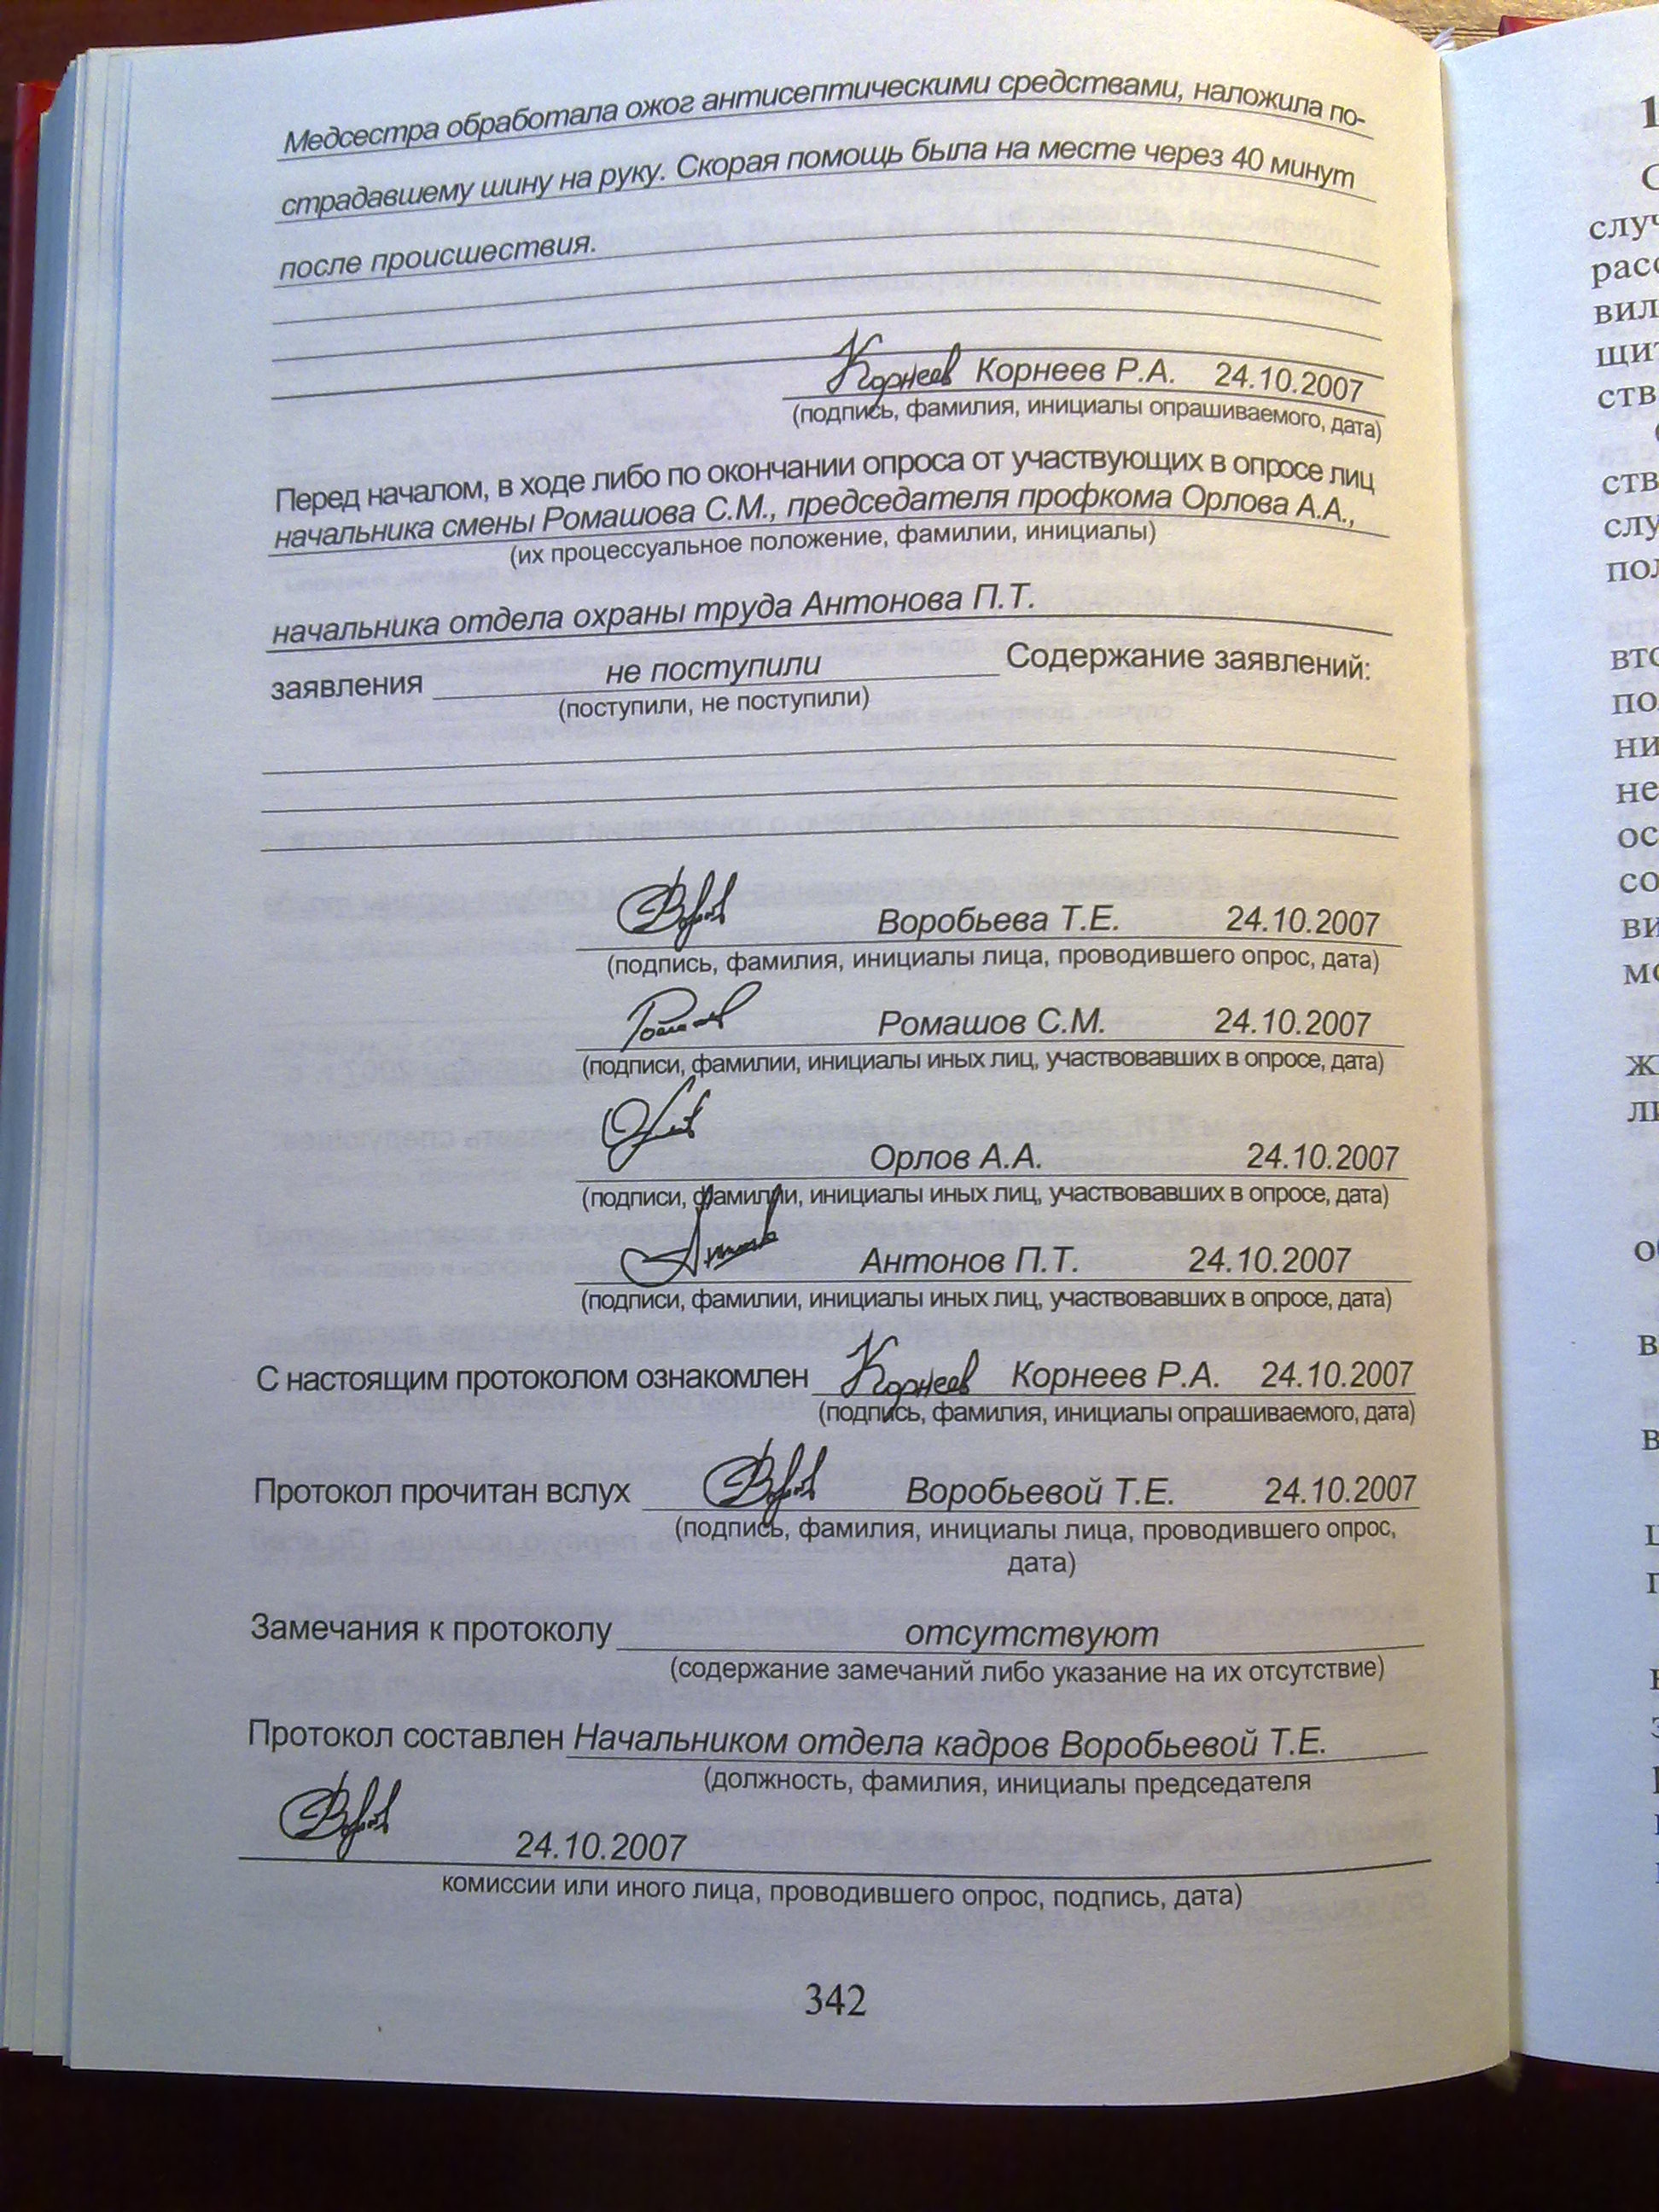 Медсестра обработала ожог антисептическими средствами, наложила по-
страдавшему шину на руку. Скорая помощь была на месте через 40 минут
после происшествия.
Корнеев Корнеев Р.А. 24.10.2007
(подпись, фамилия, инициалы опрашиваемого, дата)
Перед началом, в ходе либо по окончании опроса от участвующих в опросе лиц
начальника смены Ромашова С.М., председателя профкома Орлова А.А.,
(их процессуальное положение, фамилии, инициалы)
начальника отдела охраны труда Антонова П.Т.
заявления не поступили Содержание заявлений:
(поступили, не поступили)
Воробьева Т.Е. 24.10.2007
(подпись, фамилия, инициалы лица, проводившего опрос, дата)
Ромашов С.М. 24.10.2007
(подписи, фамилии, инициалы иных лиц, участвовавших в опросе, дата)
Орлов А.А. 24.10.2007
(подписи, фамилии, инициалы иных лиц, участвовавших в опросе, дата)
Антонов П.Т. 24.10.2007
(подписи, фамилии, инициалы иных лиц, участвовавших в опросе, дата)
С настоящим протоколом ознакомлен Корнеев Корнеев Р.А. 24.10.2007
(подпись, фамилия, инициалы опрашиваемого, дата)
Протокол прочитан вслух Воробьевой Т.Е. 24.10.2007
(подпись, фамилия, инициалы лица, проводившего опрос,
дата)
Замечания к протоколу отсутствуют
(содержание замечаний либо указание на их отсутствие)
Протокол составлен Начальником отдела кадров Воробьевой Т.Е.
(должность, фамилия, инициалы председателя
24.10.2007
комиссии или иного лица, проводившего опрос, подпись, дата)
342